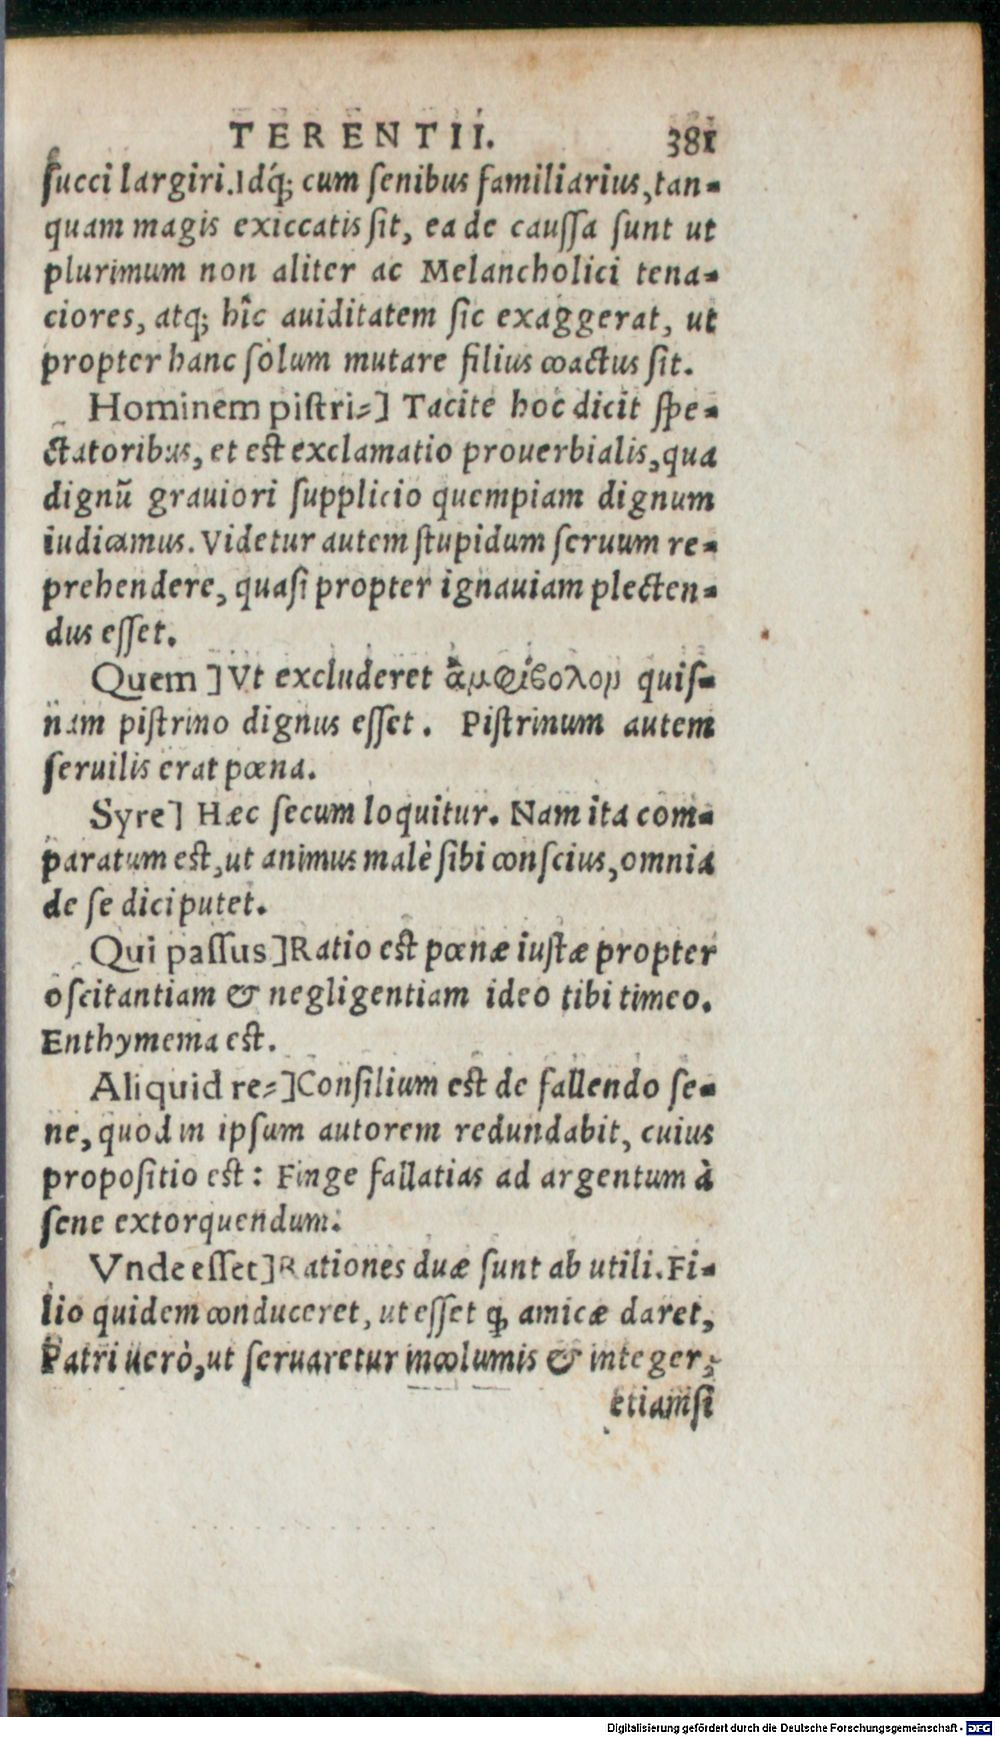 TERENTII. 381
ſucci largiri. Idq́; cum ſenibus familiarius, tan-
quam magis exiccatis ſit, ea de cauſſa ſunt ut
plurimum non aliter ac Melancholici tena-
ciores, atq; hîc auiditatem ſic exaggerat, ut
propter hanc ſolum mutare filius coactus ſit.
Hominem piſtri-] Tacite hoc dicit ſpe-
ctatoribus, et eſt exclamatio prouerbialis, qua
dignũ grauiori ſupplicio quempiam dignum
iudicamus. Videtur autem ſtupidum ſeruum re-
prehendere, quaſi propter ignauiam plecten-
dus eſſet.
Quem ] Vt excluderet ἀμφίβολον quiſ-
nam piſtrino dignus eſſet. Piſtrinum autem
ſeruilis erat pœna.
Syre] Hæc ſecum loquitur. Nam ita com-
paratum eſt, ut animus malè ſibi conſcius, omnia
de ſe dici putet.
Qui paſſus] Ratio eſt pœnæ iuſtæ propter
oſcitantiam & negligentiam ideo tibi timeo.
Enthymema eſt.
Aliquid re-] Conſilium eſt de fallendo ſe-
ne, quod in ipſum autorem redundabit, cuius
propoſitio eſt: Finge fallatias ad argentum à
ſene extorquendum.
Vnde eſſet] Rationes duæ ſunt ab utili. Fi-
lio quidem conduceret, ut eſſet ꝙ amicæ daret,
Patri uerò, ut ſeruaretur incolumis & integer,
etiamſi
Digitalisierung gefördert durch die Deutsche Forschungsgemeinschaft - DFG